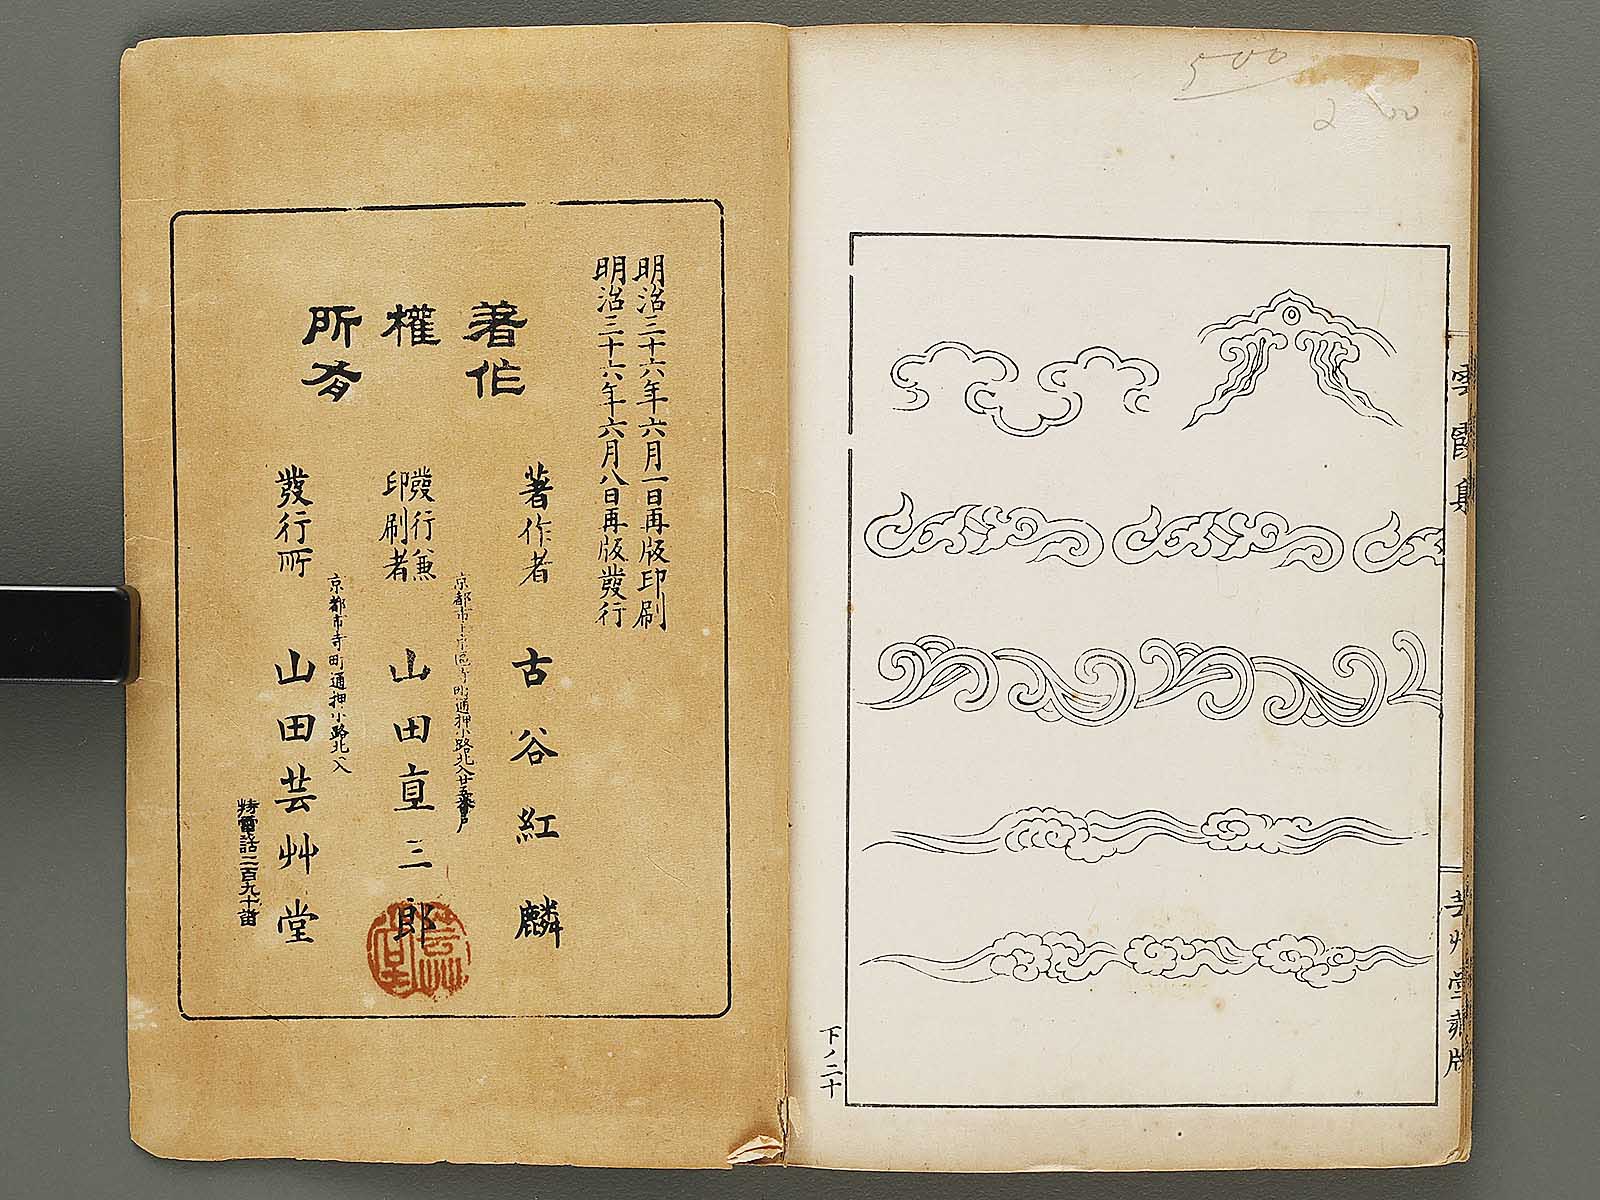 500
2 00
雲霞集
芸艸堂蔵版
下ノ二十
明治三十六年六月一日再版印刷
明治三十六年六月八日再版發行
著作
權
所有
著作者 古谷紅麟
京都市上京區寺町通押小路北入廿五番戸
發行兼
印刷者 山田直三郎
京都市寺町通押小路北入
發行所 山田芸艸堂
特電話二百九十番
芸艸堂